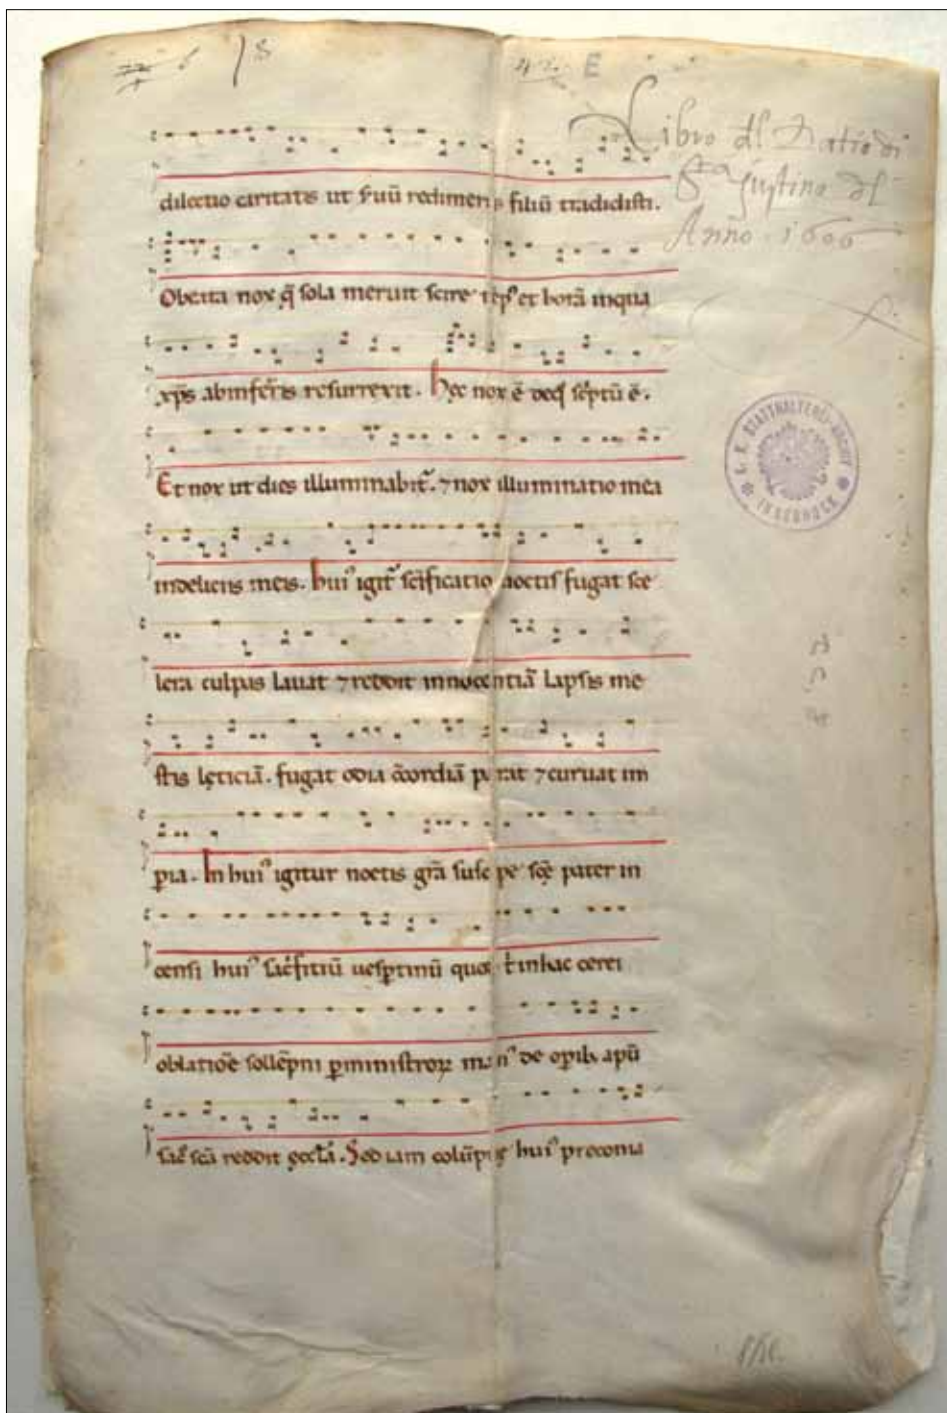 6 18
42. E
Libro dl Datio di
Sta Giustina dl
Anno 1606
dilectio caritatis ut ẜuū redimeris filiū tradidisti.
O beata nox q̄ sola meruit scire tēp᷒ et horā inqua
xp̄s abinferis resurrexit. hec nox ē deq̄ scͥptū ē.
Et nox ut dies illuminabit᷑. ⁊ nox illuminatio mea
indeliciis meis. hui᷒ igit᷑ scīficatio noctis fugat sce
lera culpas lauat ⁊ reddit innocentiā lapsis me
stis lęticiā. fugat odia c̄cordiā parat ⁊ curuat im
ꝑia. In hui᷒ igitur noctis grā suscipe scē pater in
censi hui᷒ sacͥfitiū uesꝑtinū quod t̄ inhac cerei
oblatiōe sollēpni ꝑministroꝝ man᷒ de oꝑib; apū
sac̄ scā reddit ęcclīa. Sed iam colūpnę hui᷒ preconia
K. K. STATTHALTEREI-ARCHIV
INNSBRUCK